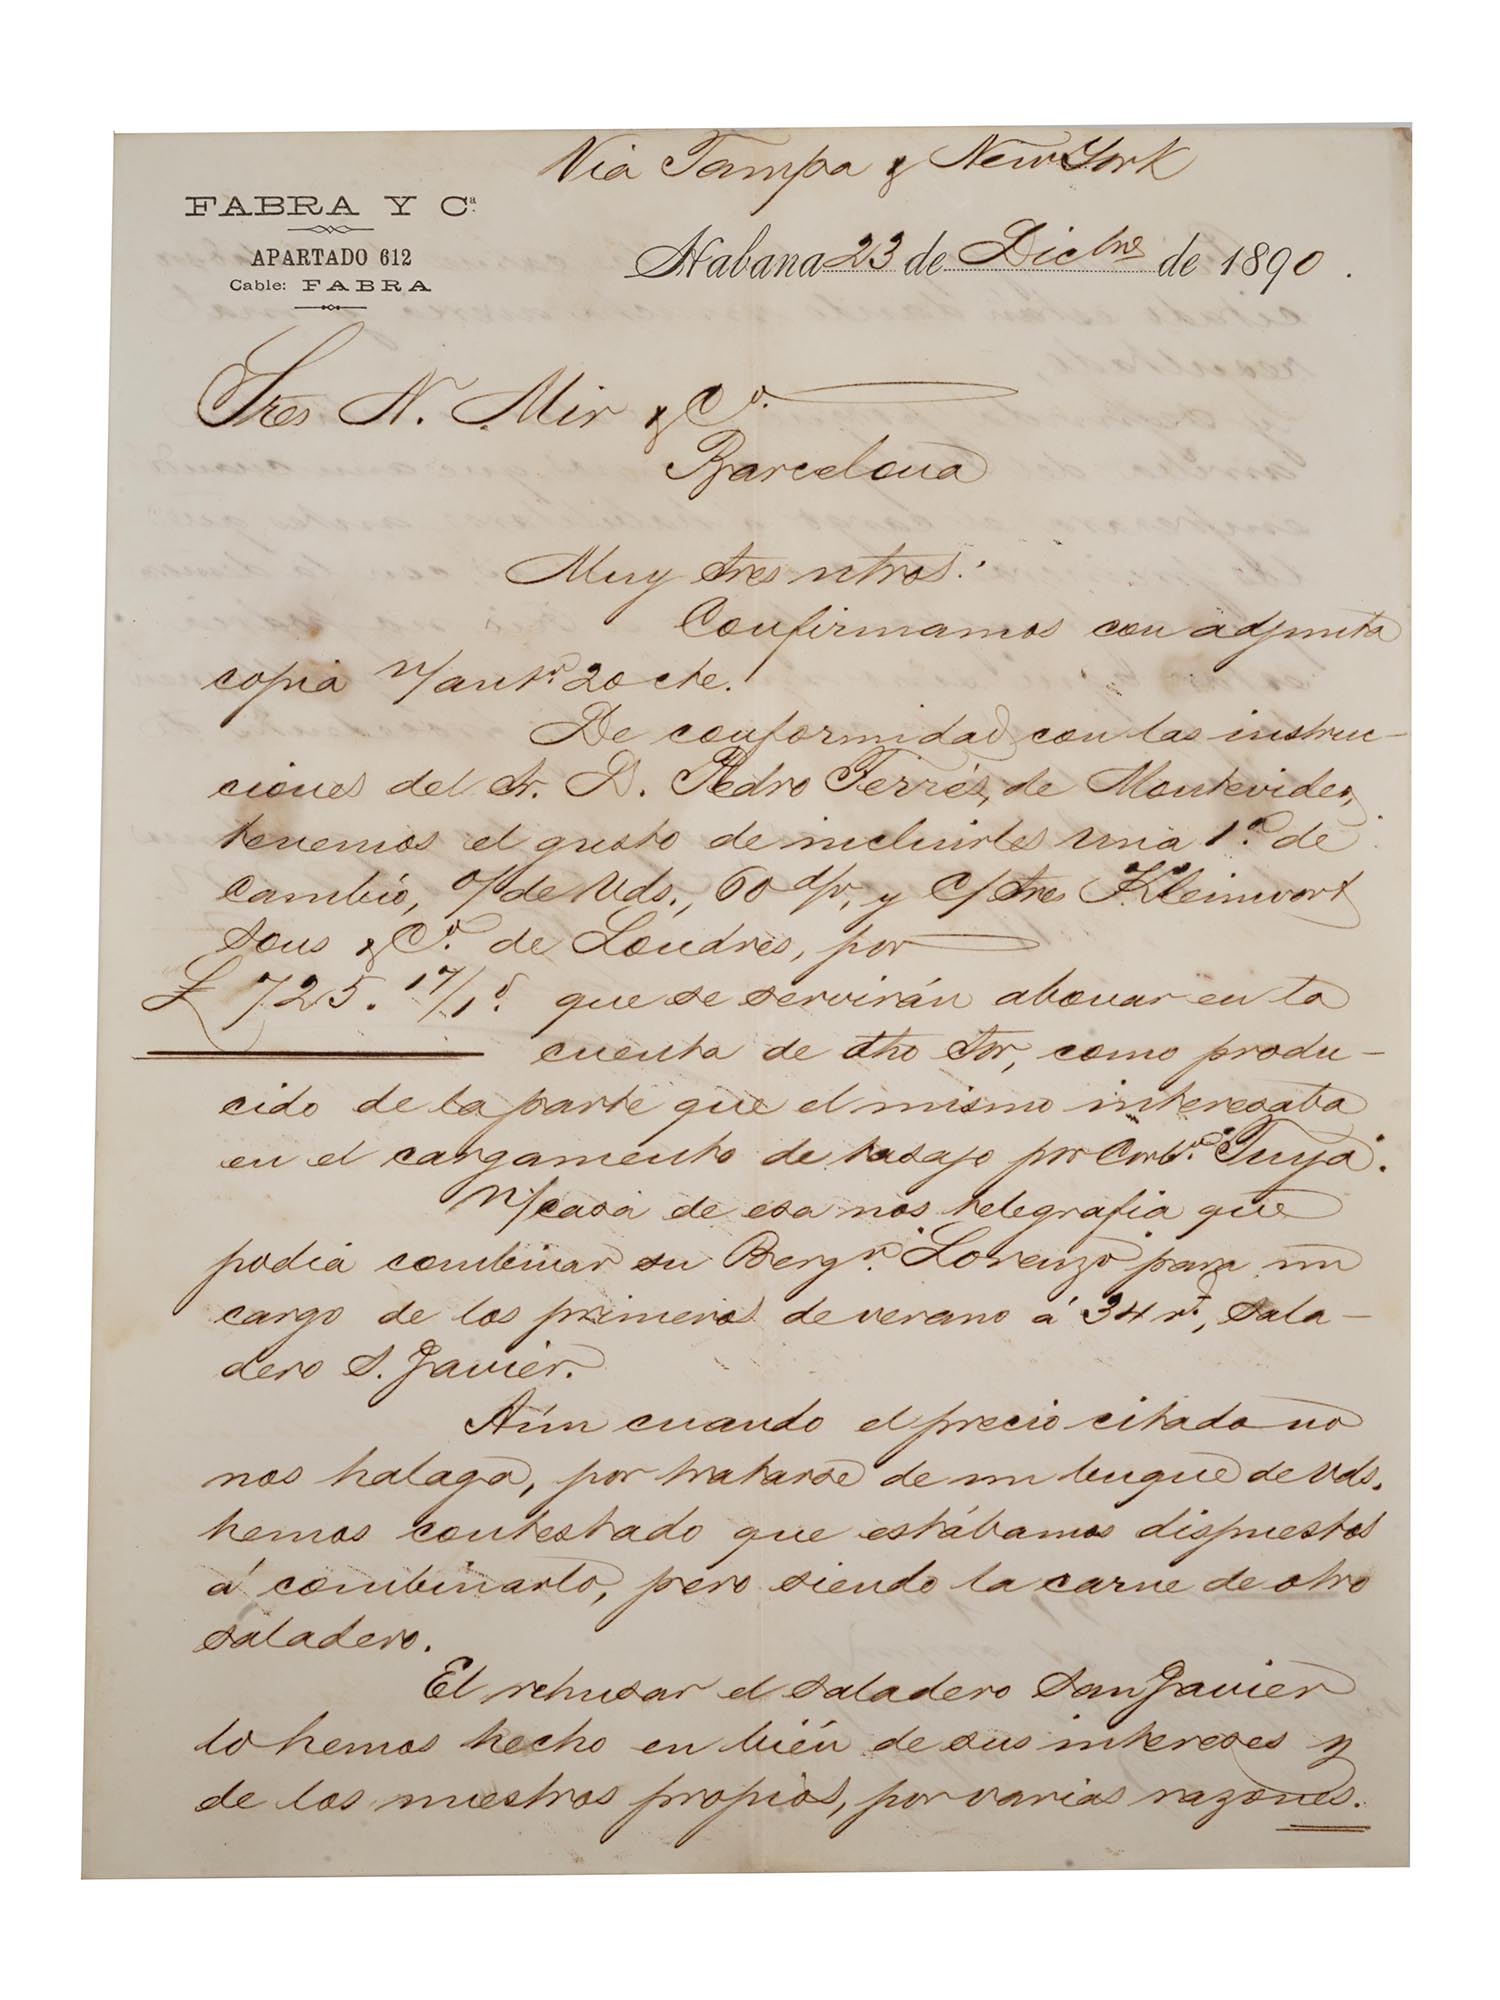 Via Tampa & New York
FABRA Y Cª.
APARTADO 612
Cable: FABRA
Habana 23 de Dicbre de 1890.
Sres N. Mir & Cª.
Barcelona
Muy Sres ntros:
Confirmamos con adjunta
copia n/antr. 20 cte.
De conformidad con las instruc-
ciones del Sr. D. Pedro Ferrés, de Montevideo,
tenemos el gusto de incluirles una 1ª. de
cambio, o/ de Uds., 60 d/v, y c/ Sres Kleinwort
Sons & Cº. de Londres, por
£ 725. 17/1d. que se servirán abonar en la
cuenta de dho Sor, como produ-
cido de la parte que el mismo interesaba
en el cargamento de tasajo por Corbª. "Tuya".
N/casa de esa nos telegrafia que
podia combinar su Bergn. "Lorenzo" para un
cargo de los primeros de verano á 34 rs, Sala-
dero S. Javier.
Aún cuando el precio citado no
nos halaga, por tratarse de un buque de Uds.
hemos contestado que estábamos dispuestos
á combinarlo, pero siendo la carne de otro
saladero.
El rehusar el saladero San Javier
lo hemos hecho en bién de sus intereses y
de los nuestros propios, por varias razones.